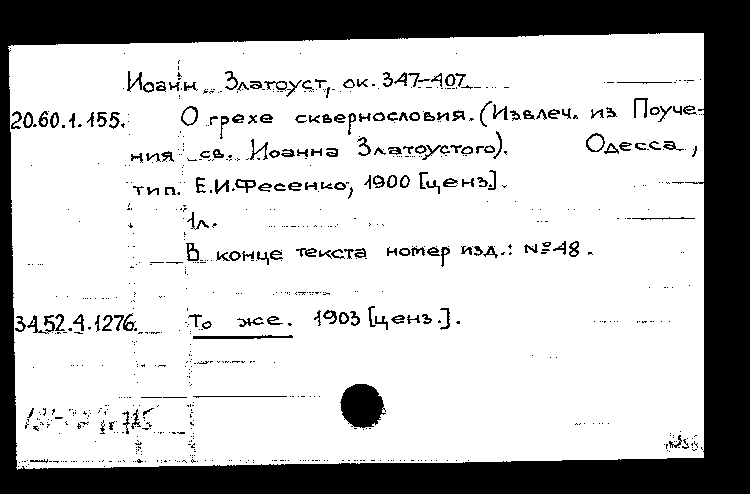 Иоанн Златоуст, ок. 347-407
20.60.1.155. О грехе сквернословия. (Извлеч. из Поуче-
ния св. Иоанна Златоустого). Одесса,
тип. Е.И.Фесенко, 1900 [ценз.].
1л.
В конце текста номер изд.: №48.
34.52.4.1276. То же. 1903 [ценз.].